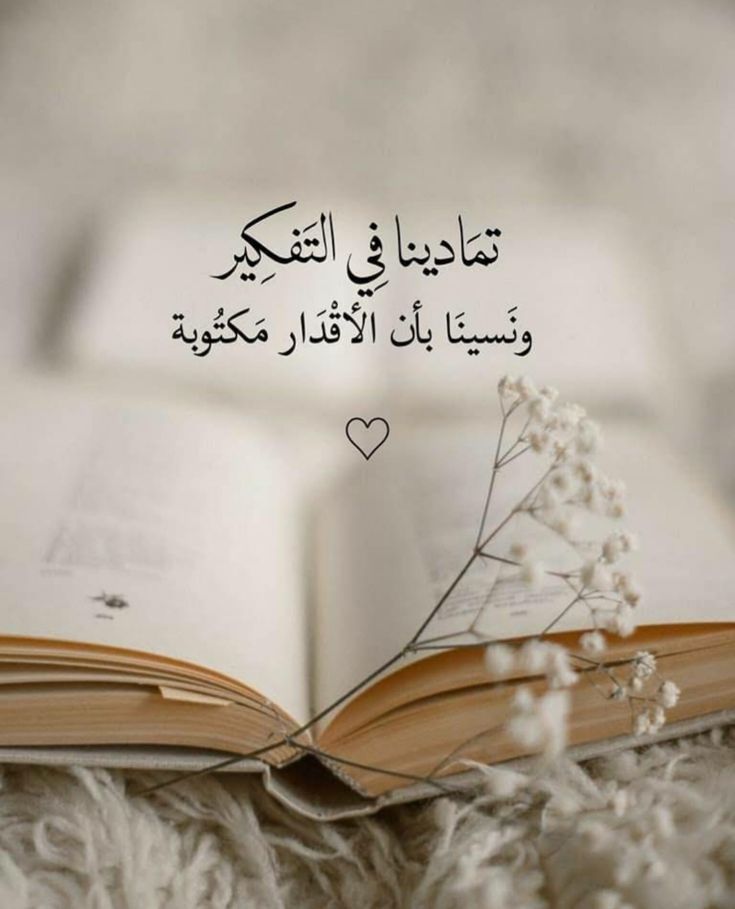 تمَادينا فِي التَفكِير
ونَسينَا بأن الأقْدَار مَكتُوبة